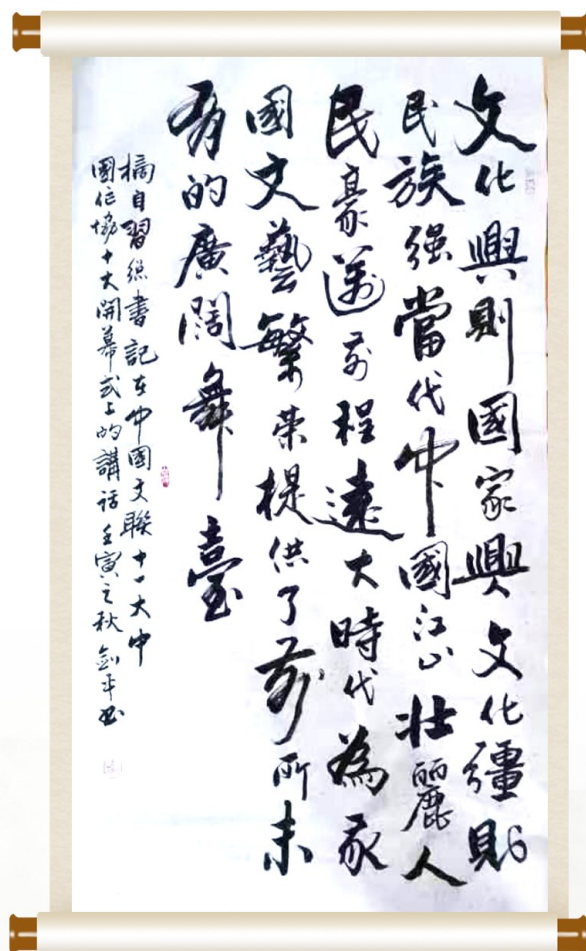 文化興則國家興文化彊則
民族强當代中國江山壯麗人
民豪邁前程遠大時代為我
國文藝繁荣提供了前所未
有的廣闊舞臺
摘自習總書記在中國文聯十一大中
國作協十大開幕式上的講话壬寅之秋劍平書